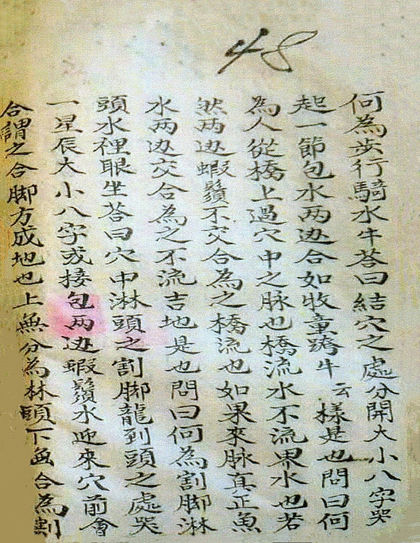 48
何為步行騎水牛荅曰結穴之處分開大小八字哭
起一節包水两边合如收童跨牛云樣是也問曰何
為人從橋上過穴中之脉也橋流水不流界水也若
然两边蝦鬚不交合為之橋流也如果來脉真正魚
水两边交合為之不流吉地是也問曰何為割脚淋
頭水裡眼坐荅曰穴中淋頭之割脚龍到頭之處哭
一星辰大小八字或接包两边蝦鬚水迎来穴前會
合謂之合脚方成地也上無分為林頭下無合為割